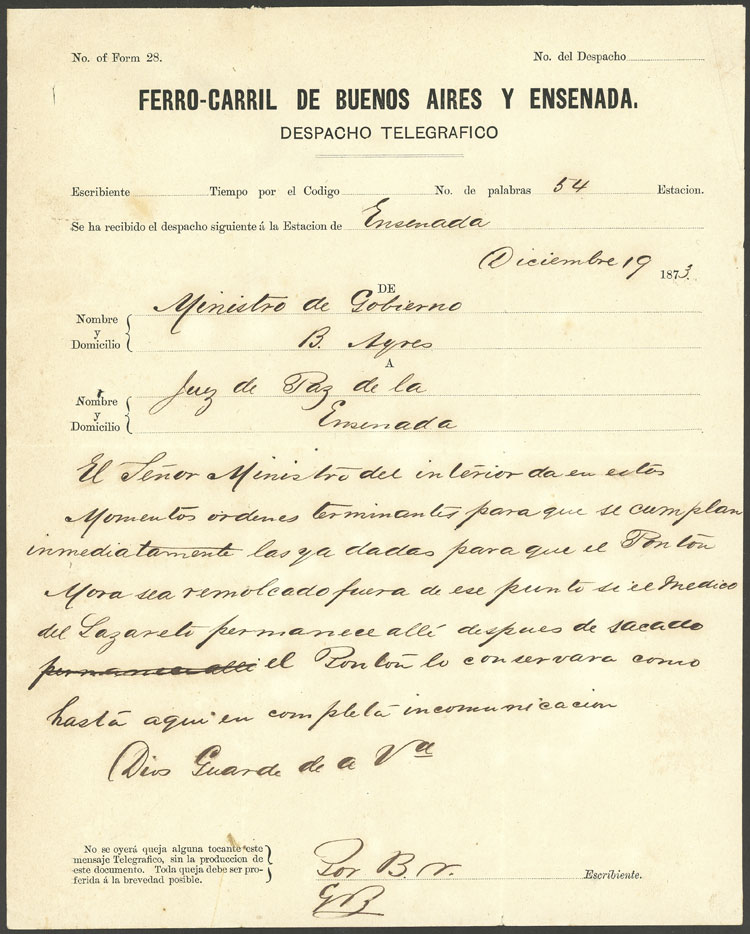 No. of Form 28. No. del Despacho
FERRO-CARRIL DE BUENOS AIRES Y ENSENADA.
DESPACHO TELEGRAFICO
Escribiente Tiempo por el Codigo No. de palabras 54 Estacion.
Se ha recibido el despacho siguiente á la Estacion de Ensenada
Diciembre 19 1873.
DE
Nombre y Domicilio { Ministro de Gobierno
B. Ayres
A
Nombre y Domicilio { Juez de Paz de la
Ensenada
El Señor Ministro del interior da en estos
Momentos ordenes terminantes para que se cumplan
inmediatamente las ya dadas para que el Pontón
Mora sea remolcado fuera de ese punto si el Medico
del Lazareto permanece allí despues de sacado
permanece allí el Pontón lo conservara como
hasta aqui en completa incomunicacion
Dios Guarde de a Vd
No se oyerá queja alguna tocante este
mensaje Telegrafico, sin la produccion de
este documento. Toda queja debe ser pro-
ferida á la brevedad posible.
Por B. V. Escribiente.
GB